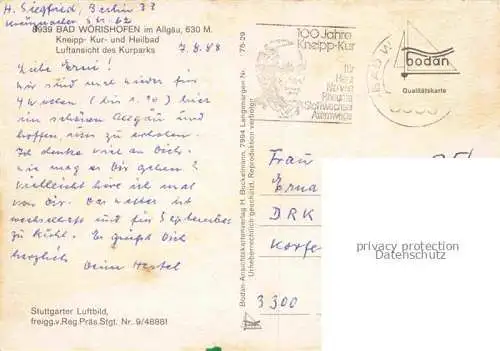 H. Siegfried, Berlin 33
Kreuznacher Str. 62
8939 BAD WÖRISHOFEN im Allgäu, 630 M.
Kneipp- Kur- und Heilbad
Luftansicht des Kurparks
7.9.88
Liebe Erni!
Wir sind mal wieder für
4 Wochen (bis 1.10) hier
im schönen Allgäu und
hoffen, uns zu erholen.
Ich denke viel an Dich.
Wie mag es Dir gehen?
Vielleicht höre ich mal
von Dir. Das Wetter ist
wechselhaft und für September
zu kühl. Es grüßt Dich
herzlich
Deine Hertel
Stuttgarter Luftbild,
freigg.v.Reg.Präs.Stgt. Nr. 9/48881
Bodan-Ansichtskartenverlag H. Bockelmann, 7994 Langenargen Nr. 75-29
Urheberrechtlich geschützt. Reproduktion verboten.
100 Jahre
Kneipp-Kur
für
Herz
Nerven
Rheuma
Stoffwechsel
Atemwege
BAD W
bodan
Qualitätskarte
Frau
Erna
DRK
3300
privacy protection
Datenschutz